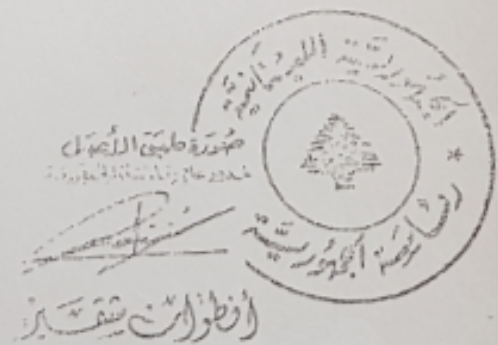 الجمهورية اللبنانية
رئاسة الجمهورية
صورة طبق الأصل
أنطوان شقير